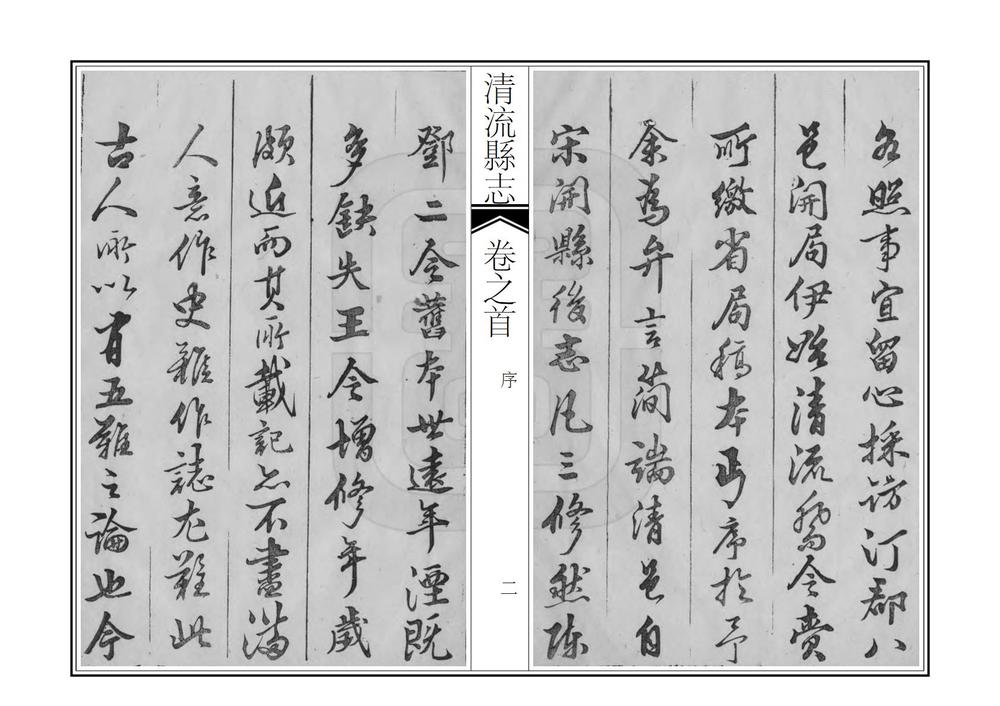 各照事宜留心採訪汀郡八
邑開局伊始清流喬令賫
所繳省局稿本丐序於予
余為弁言簡端清邑自
宋開縣後志凡三修然陳
清流縣志
卷之首
序
二
鄧二令舊本世遠年湮既
多缺失王令增修年歲
頗近而其所載記亦不盡滿
人意作史難作誌尤難此
古人所以有五難之論也今